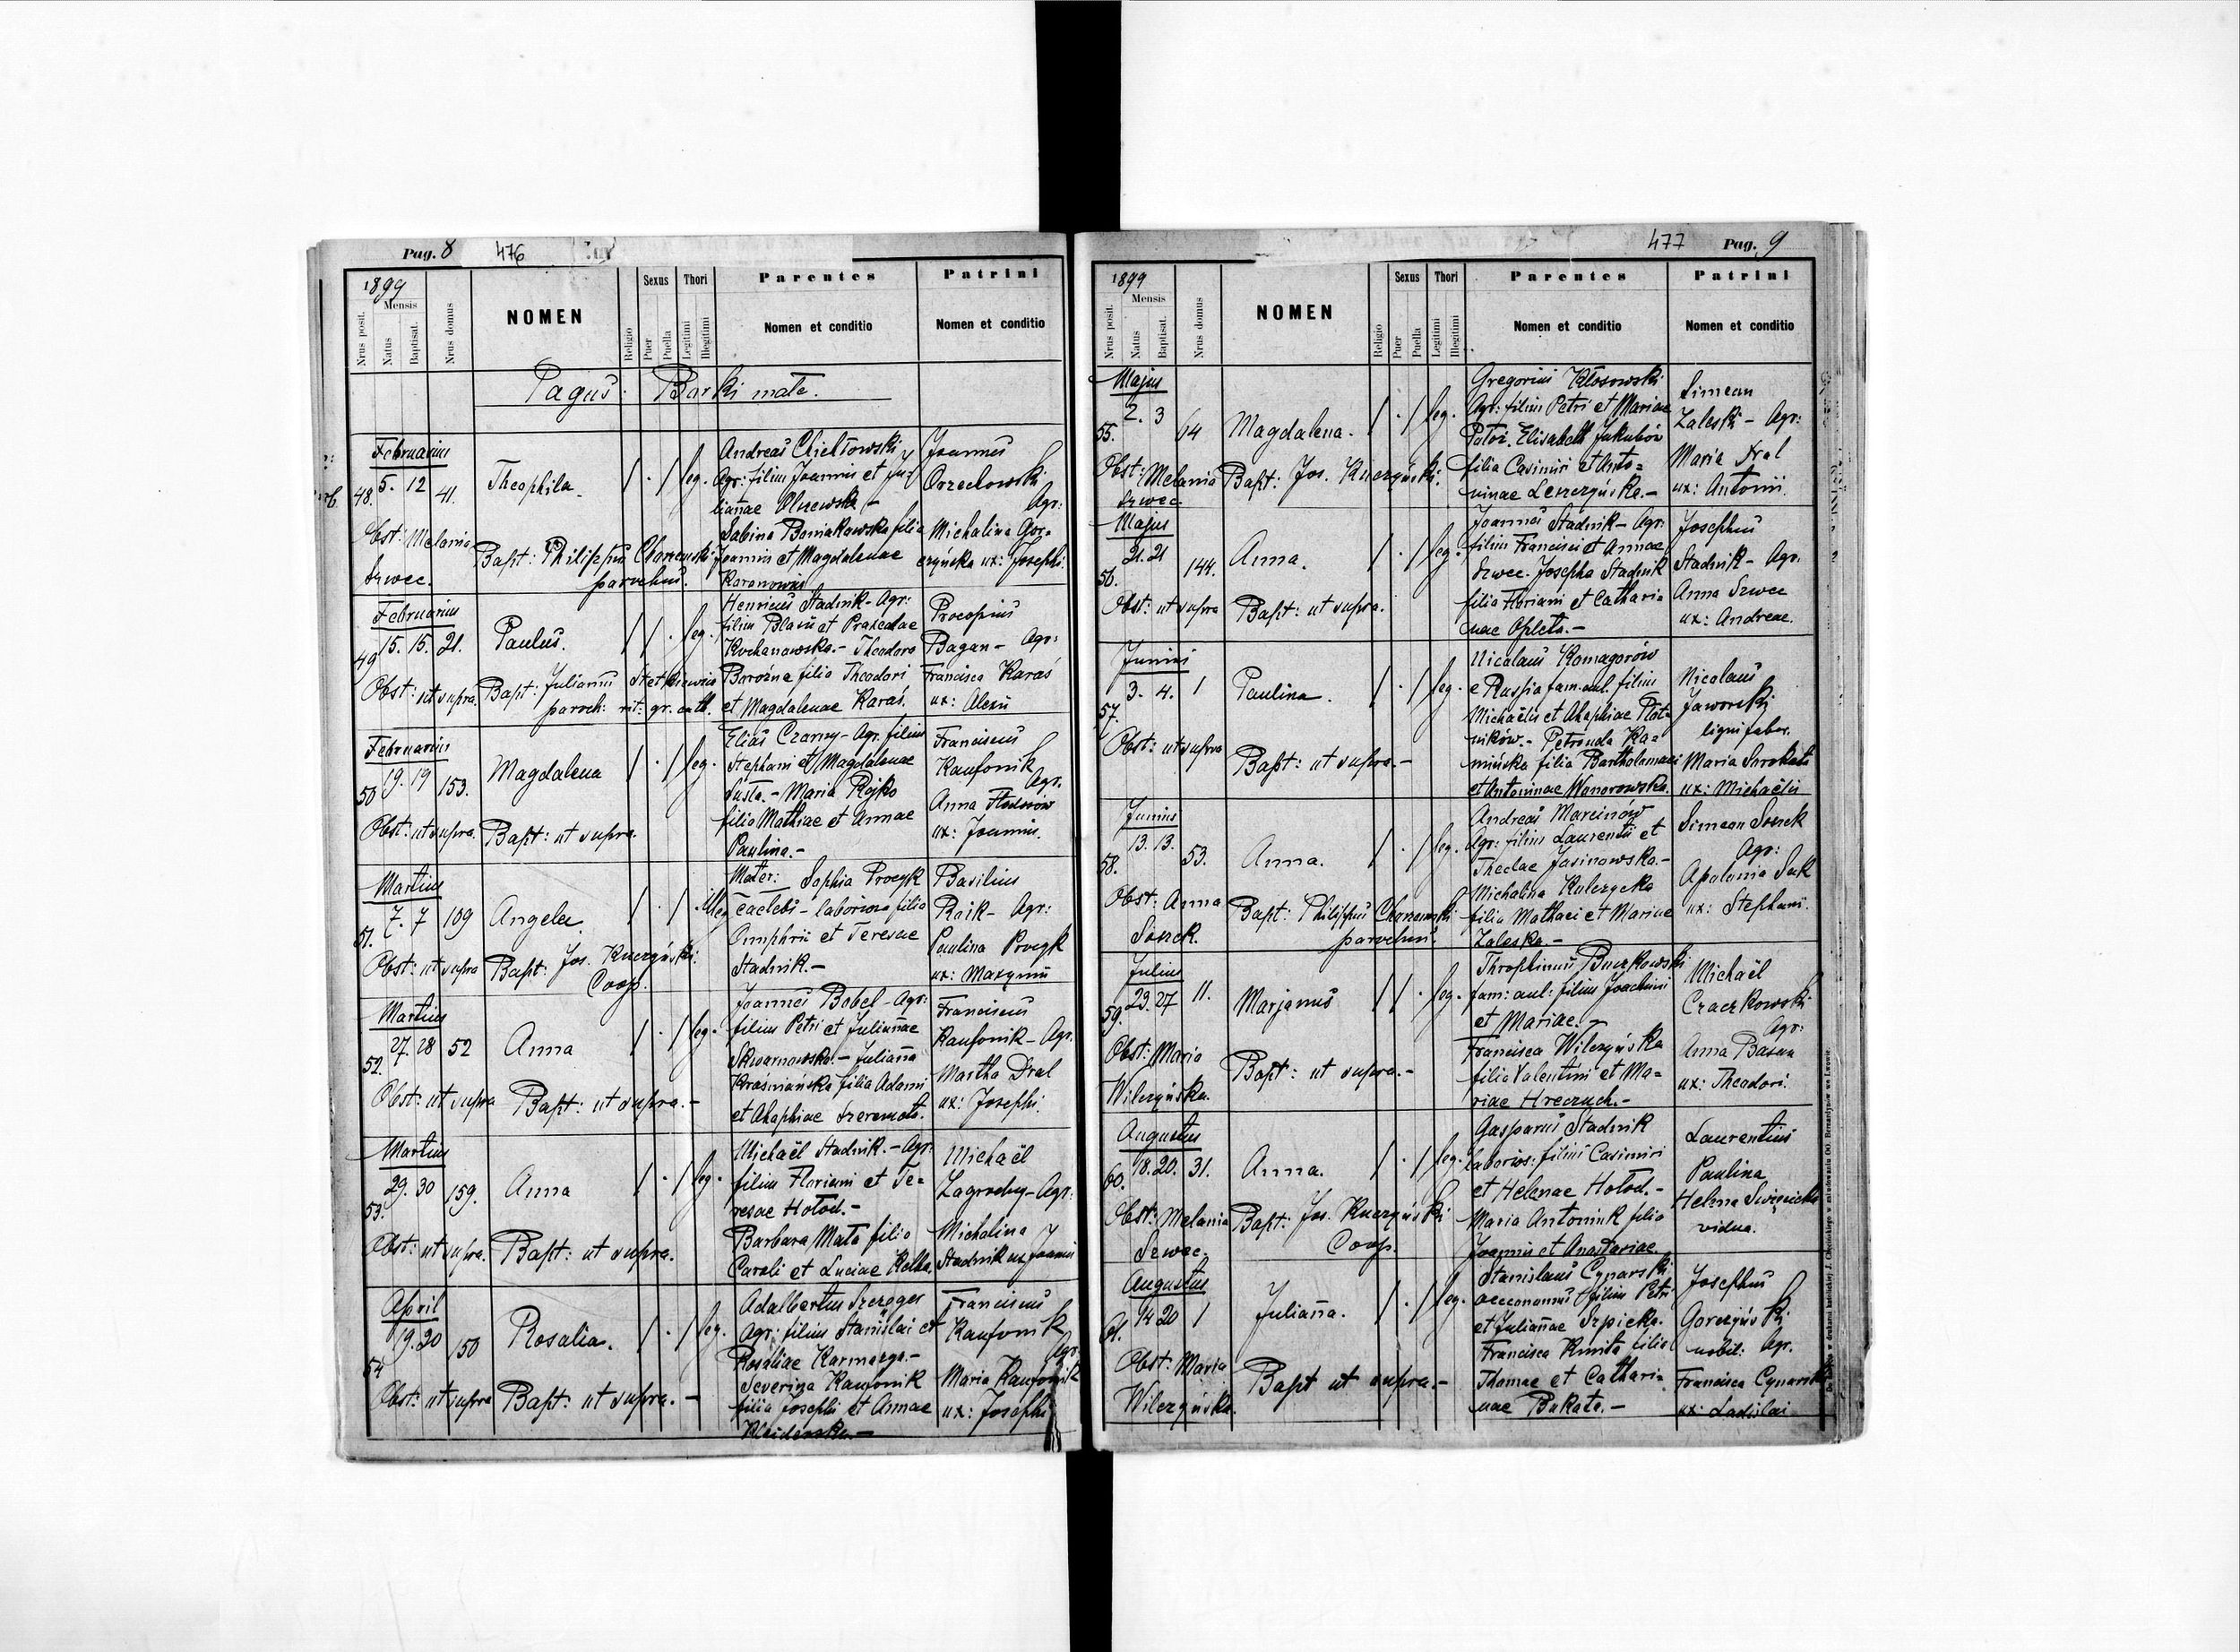 Pag. 8 476
1899
Nrus posit.
Mensis
Natus
Baptisat.
Nrus domus
NOMEN
Religio
Sexus
Puer
Puella
Thori
Legitimi
Illegitimi
Parentes
Nomen et conditio
Patrini
Nomen et conditio
Pagus: Borki małe.
Februarius
48. 5. 12 41.
Theophila.
leg.
Obst: Melania
Szwec.
Bapt: Philippus
parochus.
Andreas
Agr: filius Joannis et Ju=
lianae
Sabina filia
Joannis et Magdalenae
Joannes
Orzechowski
Agr:
Michalina Gor=
czyńska ux: Josephi.
Februarius
49 15. 15. 21.
Paulus.
leg.
Obst: ut supra.
Bapt: Julianus
paroch: rit: gr. cath.
Henricus Stadnik - Agr:
filius Blasii et Praxedae
Kochanowska. - Theodora
filia Theodori
et Magdalenae Karaś.
Procopius
Bagan - Agr:
Francisca Karaś
ux: Alexii
Februarius
50 19. 19 153.
Magdalena
leg.
Obst: ut supra.
Bapt: ut supra.
Elias Czarny - Agr. filius
Stephani et Magdalenae
Susta. - Maria Rojko
filia Mathiae et Annae
Paulina. -
Franciscus
Kaufonik
Agr.
Anna
ux: Joannis.
Martius
51. 7. 7 109
Angela.
illeg
Obst: ut supra
Bapt: Jos. Knerzyński:
Coop.
Mater: Sophia Procyk
caelebs - laboriosa filia
Onuphrii et Teresae
Stadnik. -
Basilius
Raik - Agr:
Paulina Procyk
ux: Maxymii
Martius
52. 27. 28 52
Anna
leg.
Obst: ut supra
Bapt: ut supra. -
Joannes Bobel - Agr:
filius Petri et Julianae
Skwarnowska. - Juliana
Kraśniańska filia Adami
et Ahaphiae Szeremeta.
Franciscus
Kaufonik - Agr.
Martha Dral
ux: Josephi.
Martius
53. 29. 30 159.
Anna
leg.
Obst: ut supra.
Bapt: ut supra.
Michaël Stadnik. - Agr:
filius Floriani et Te=
resae Hołod. -
Barbara Mała filia
Caroli et Luciae
Michaël
Zagrodny - Agr:
Michalina
Stadnik ux Joannis
April
54 19. 20 150
Rosalia.
leg.
Obst: ut supra
Bapt: ut supra. -
Adalbertus Szezeger
Agr: filius Stanislai et
Rosaliae Karmazga. -
Severina Kaufonik
filia Josephi et Annae
Franciscus
Kaufonik
Agr.
Maria Kaufonik
ux: Josephi
477 Pag. 9
1899
Nrus posit.
Mensis
Natus
Baptisat.
Nrus domus
NOMEN
Religio
Sexus
Puer
Puella
Thori
Legitimi
Illegitimi
Parentes
Nomen et conditio
Patrini
Nomen et conditio
Majus
55. 2. 3 14
Magdalena.
leg.
Obst: Melania
Szwec
Bapt: Jos. Knerzyński.
Gregorius Kłosowski
Agr: filius Petri et Mariae
Elisabeth Jakubów
filia Casimiri et Anto=
ninae Leszczyńska. -
Simeon
Zaleski - Agr:
Maria Dral
ux: Antonii.
Majus
56. 21. 21 144.
Anna.
leg.
Obst: ut supra
Bapt: ut supra.
Joannes Stadnik - Agr:
filius Francisci et Annae
Szwec. Josepha Stadnik
filia Floriani et Cathari=
nae Opleta. -
Josephus
Stadnik - Agr.
Anna Szwec
ux: Andreae.
Junius
57. 3. 4. 1
Paulina.
leg.
Obst: ut supra
Bapt: ut supra. -
Nicolaus Komagorów
e Russia fam. aul. filius
Michaëlis et Ahaphiae Płot=
ników. - Petronela Ka=
mińska filia Bartholomaei
et Antoninae Wonorowska.
Nicolaus
Jaworski
ligni faber.
Maria Sorokata
ux: Michaëlis
Junius
58. 13. 13. 53.
Anna.
leg.
Obst: Anna
Sorek.
Bapt: Philippus
parochus.
Andreas Marcinów
Agr: filius Laurentii et
Theclae Jasinowska. -
Michalina Kulczycka
filia Mathaei et Mariae
Zaleska. -
Simeon Sorek
Agr:
Apolonia Suk
ux: Stephani.
Julius
59. 23. 27 11.
Marjanus
leg.
Obst: Maria
Wilczyńska.
Bapt: ut supra. -
Throphimus Buczkowski
fam: aul: filius Joachimi
et Mariae. -
Francisca Wilczyńska
filia Valentini et Ma=
riae Hreczuch. -
Michaël
Czaczkowski
Agr:
Anna Basna
ux: Theodori.
Augustus
60. 18. 20. 31.
Anna.
leg.
Obst: Melania
Szwec.
Bapt: Jos. Knerzyński
Coop.
Gasparus Stadnik
laborios: filius Casimiri
et Helenae Hołod. -
Maria Antoniuk filia
Joannis et Anastasiae.
Laurentius
Paulina
Helena Swięcicka
vidua.
Augustus
61. 14 20 1
Juliana.
leg.
Obst: Maria
Wilczyńska.
Bapt ut supra. -
Stanislaus Cynarski
oeconomus filius Petri
et Julianae Szpicka.
Francisca Kmita filia
Thomae et Cathari=
nae Bukata. -
Josephus
Gorczyński
nobil: Agr.
Francisca Cynarska
ux: Ladislai